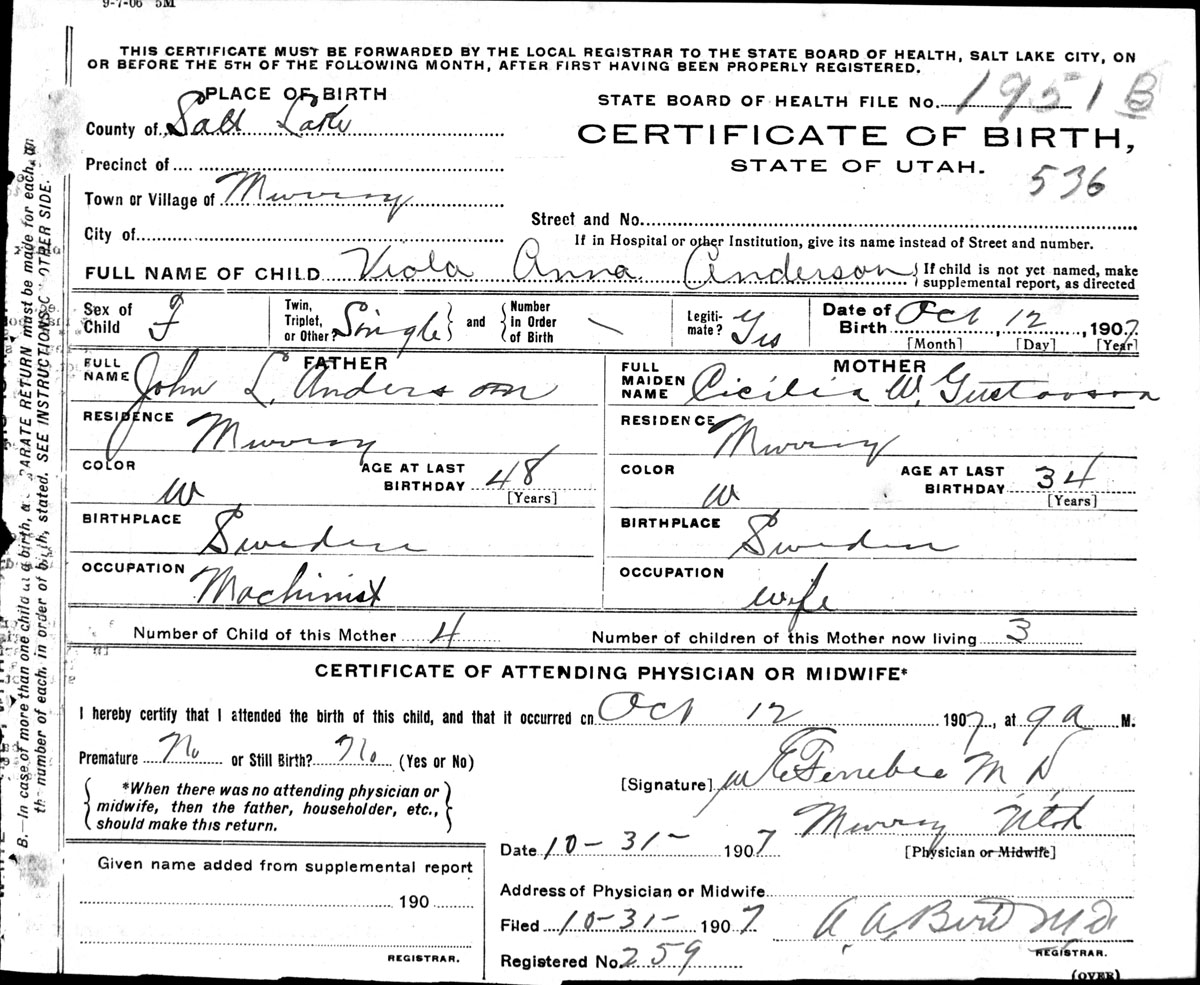 9-7-06 5M
THIS CERTIFICATE MUST BE FORWARDED BY THE LOCAL REGISTRAR TO THE STATE BOARD OF HEALTH, SALT LAKE CITY, ON
OR BEFORE THE 5TH OF THE FOLLOWING MONTH, AFTER FIRST HAVING BEEN PROPERLY REGISTERED.
PLACE OF BIRTH
STATE BOARD OF HEALTH FILE No. 1951 B
County of Salt Lake
CERTIFICATE OF BIRTH,
STATE OF UTAH.
536
Precinct of
Town or Village of Murray
Street and No.
City of
If in Hospital or other Institution, give its name instead of Street and number.
FULL NAME OF CHILD Viola Anna Anderson { If child is not yet named, make supplemental report, as directed
Sex of Child F Twin, Triplet, or Other? Single } and { Number in Order of Birth Legiti-mate? Yes Date of Birth Oct 12, 1907
[Month] [Day] [Year]
FATHER
FULL NAME John L. Anderson
MOTHER
FULL MAIDEN NAME Cicilia W. Gustavson
RESIDENCE Murray
RESIDENCE Murray
COLOR W AGE AT LAST BIRTHDAY 48 [Years]
COLOR W AGE AT LAST BIRTHDAY 34 [Years]
BIRTHPLACE Sweden
BIRTHPLACE Sweden
OCCUPATION Machinist
OCCUPATION wife
Number of Child of this Mother 4 Number of children of this Mother now living 3
CERTIFICATE OF ATTENDING PHYSICIAN OR MIDWIFE*
I hereby certify that I attended the birth of this child, and that it occurred on Oct 12 1907, at 9 a M.
Premature No or Still Birth? No (Yes or No)
[Signature] Ferrebee M D
*When there was no attending physician or
midwife, then the father, householder, etc.,
should make this return.
Murray Utah
Date 10-31- 1907 [Physician or Midwife]
Given name added from supplemental report
190
REGISTRAR.
Address of Physician or Midwife
Filed 10-31- 1907 A. A. Bird M.D.
REGISTRAR.
Registered No. 259
(OVER)
B.—In case of more than one child at a birth, a SEPARATE RETURN must be made for each, and
the number of each, in order of birth, stated. SEE INSTRUCTIONS OTHER SIDE.